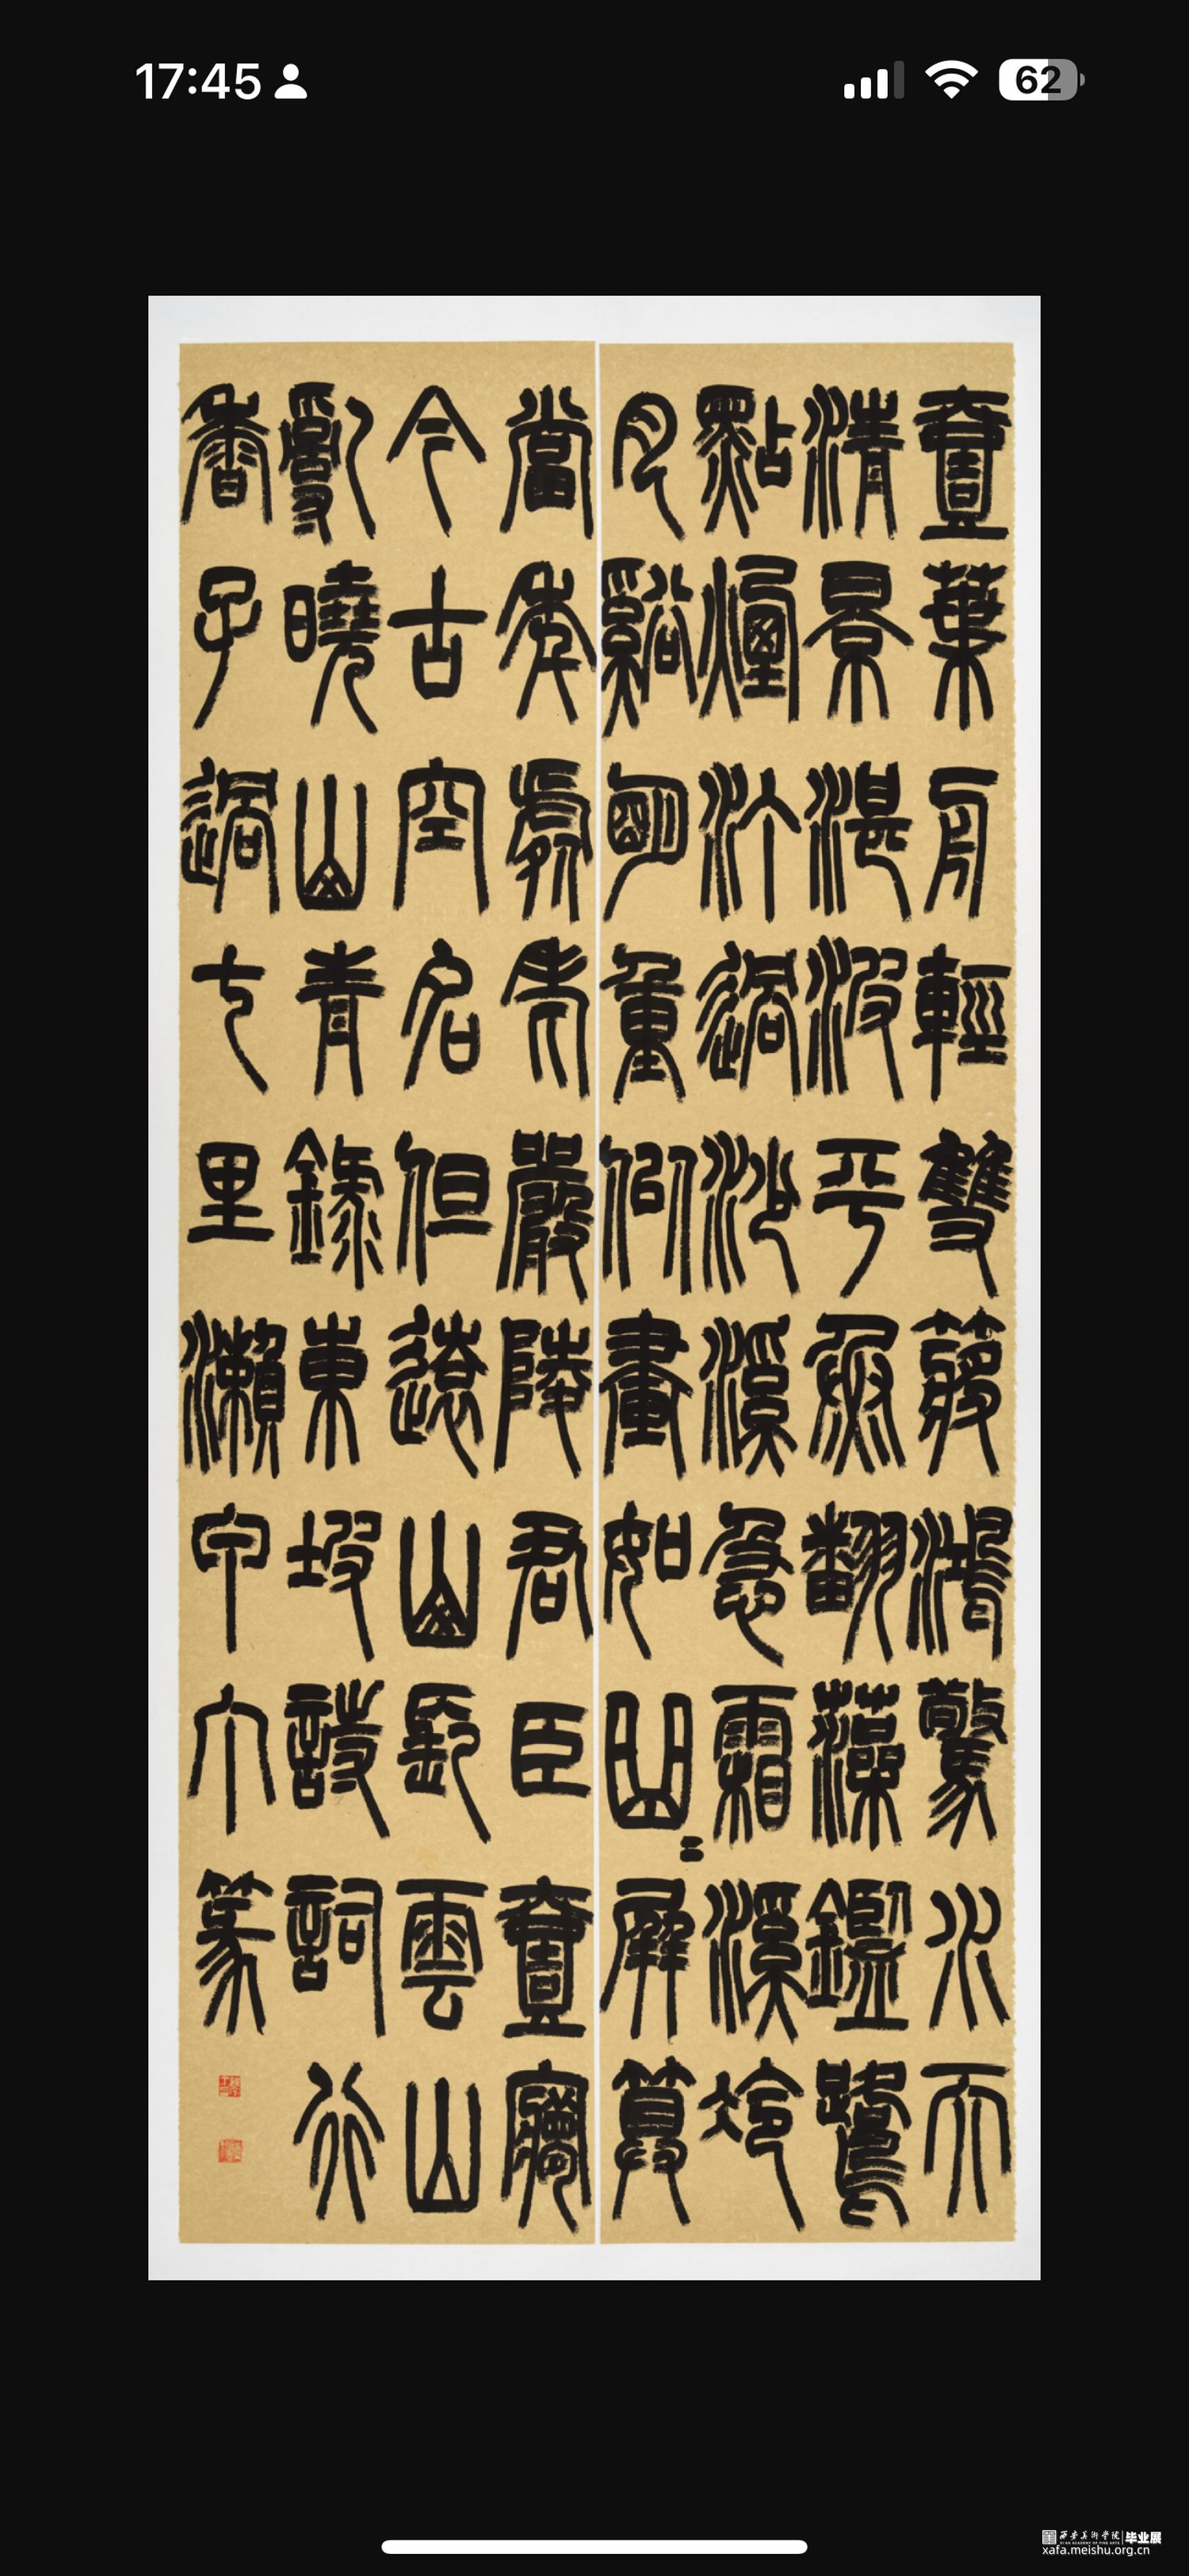 17:45 62
壹葉舟輕雙槳鴻驚水天
清景湛波平魚翻藻鑑鷺
點煙汀過沙溪急霜溪冷
月谿明重似畫如曲〻屏算
當年虛老嚴陵君臣壹夢
今古空名但遠山長雲山
亂曉山青錄東坡詩詞行
香子過七里瀨甲午篆
西安美術学院 毕业展
xafa.meishu.org.cn